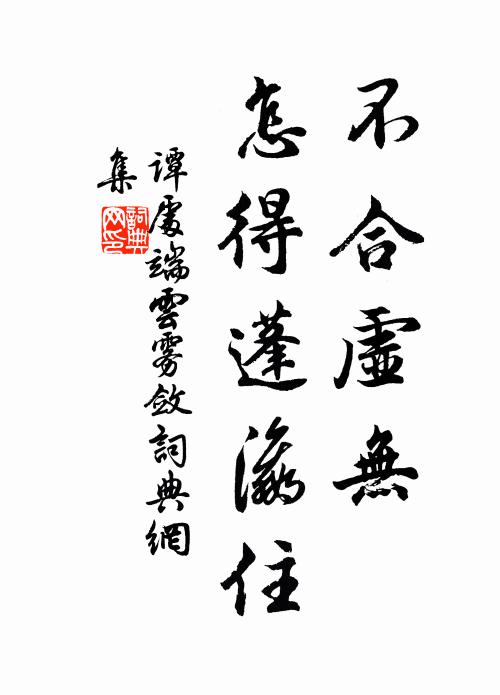 不合虛無
怎得蓬瀛住
譚處端雲霧斂詞典網
集
詞典
网印